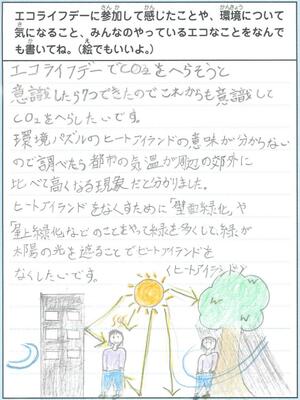 エコライフデーに参加して感じたことや、環境について
気になること、みんなのやっているエコなことをなんで
も書いてね。(絵でもいいよ。)
エコライフデーでCO2をへらそうと
意識したら7つできたのでこれからも意識して
CO2をへらしたいです。
環境パズルのヒートアイランドの意味が分からない
ので調べたら都市の気温が周辺の郊外に
比べて高くなる現象だと分かりました。
ヒートアイランドをなくすために「壁面緑化」や
「屋上緑化」などのことをやって緑を多くして、緑が
太陽の光を遮ることでヒートアイランドを
なくしたいです。
(ヒートアイランド)